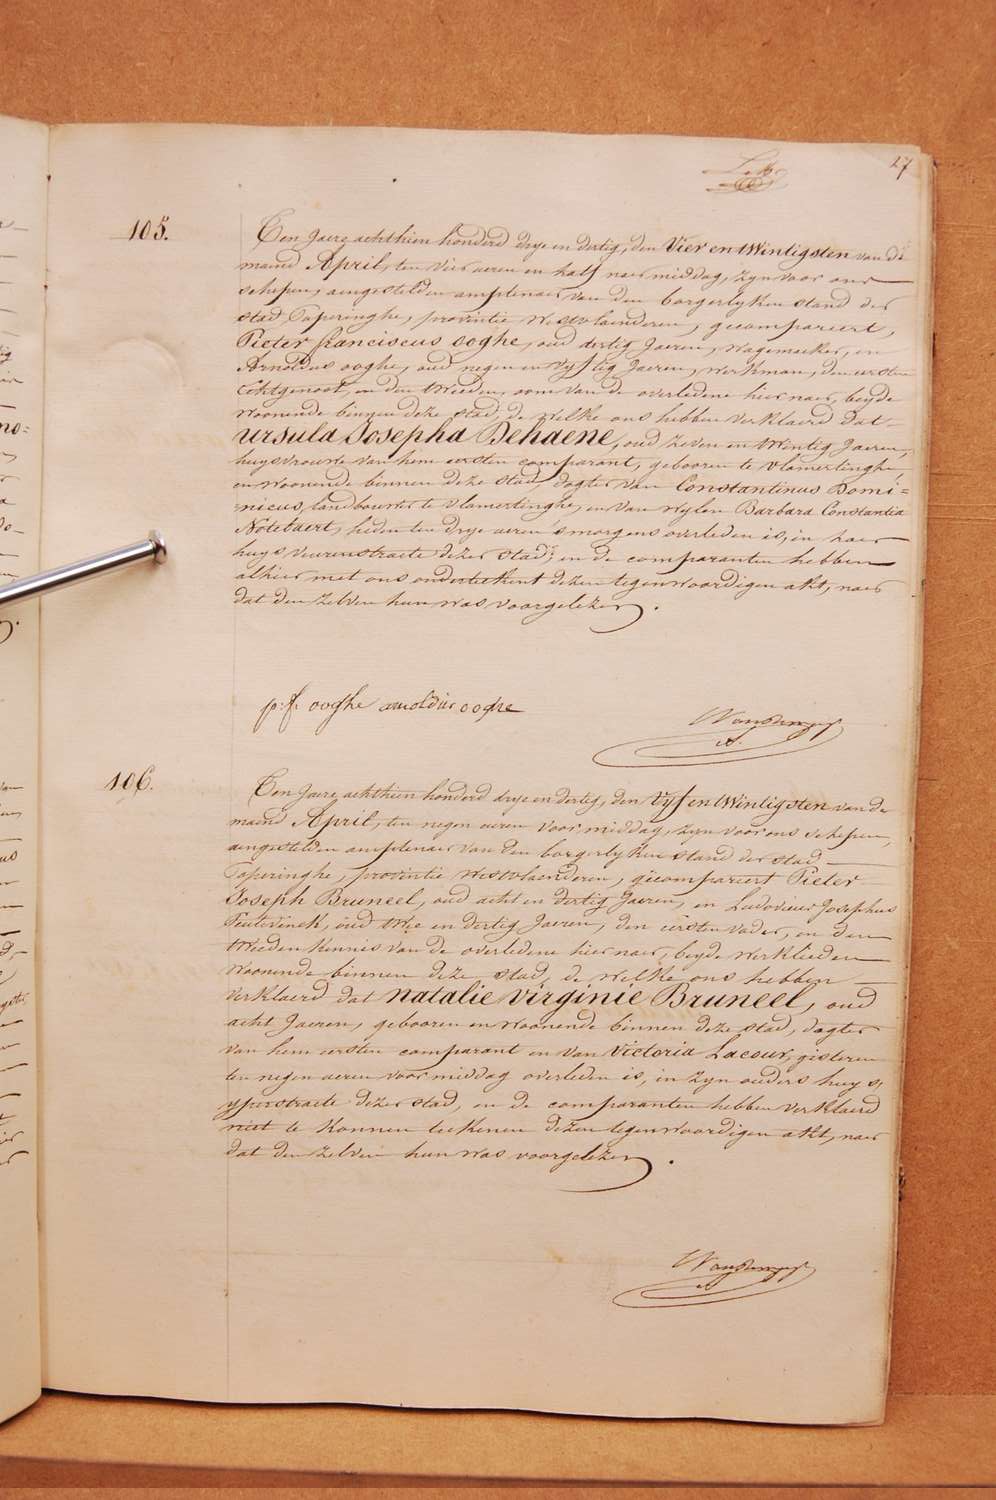 27
105.
Ten Jaere achthien honderd drye en dertig, den Vier en twintigsten van de
maend April, ten vier ueren en half naer middag, zyn voor ons
schepen, aengestelden amptenaer van den borgerlyken stand der
stad Poperinghe, provintie Westvlaenderen, gecompareert,
Pieter franciscus ooghe, oud dertig Jaeren, wagemaeker, en
Arnoldus ooghe, oud negen en vyftig Jaeren, werkman, den eersten
Echtgenoot, en den tweeden, oom van de overledene hier naer, beyde
woonende binnen deze stad, de welke ons hebben verklaerd dat
ursula Josepha Dehaene, oud zeven en twintig Jaeren,
huysvrouwe van hem eersten comparant, gebooren te vlamertinghe,
en woonende binnen deze stad, dogter van Constantinus Domi=
=nicus, landbouwer te vlamertinghe, en van wylen Barbara Constantia
Notebaert, heden ten drye ueren 's morgens overleden is, in haer
huys veurenstraete dezer stad; en de comparanten hebben
alhier met ons onderteekent dezen tegenwoordigen akt, naer
dat den zelven hun was voorgelezen.
p: f: ooghe arnoldus ooghe
106.
Ten Jaere achthien honderd drye en dertig, den Vyf en twintigsten van de
maend April, ten negen ueren voor middag, zyn voor ons schepen,
aengestelden amptenaer van den borgerlyken stand der stad
Poperinghe, provintie Westvlaenderen, gecompareert Pieter
Joseph Bruneel, oud acht en dertig Jaeren, en Ludovicus Josephus
oud twee en dertig Jaeren, den eersten vader, en den
tweeden kennis van de overledene hier naer, beyde werklieden
woonende binnen deze stad, de welke ons hebben
verklaerd dat natalie virginie Bruneel, oud
acht Jaeren, gebooren en woonende binnen deze stad, dogter
van hem eersten comparant en van victoria Lacour, gisteren
ten negen ueren voor middag overleden is, in zyn ouders huys,
yperstraete dezer stad, en de comparanten hebben verklaerd
niet te konnen teekenen dezen tegenwoordigen akt, naer
dat den zelven hun was voorgelezen.